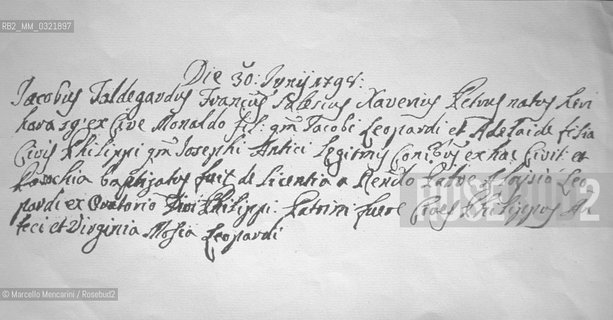 RB2_MM_0321897
Die 30: Junij 1798:
Jacobus Taldegardus Franciscus Salesius Xaverius Petrus natus heri
hora 19 ex Cive Monaldo fil: qm Jacobi Leopardi et Adelaide filia
Civis Philippi qm Josephi Antici legitmis Conibus ex hac Civit et
Parochia baptizatus fuit de licentia a Rendo Patre Aloysio Leo
pardi ex Oratorio Divi Philippi. Patrini fuere Cives Philippus An
tici et Virginia Mosca Leopardi
ROSEBUD2
© Marcello Mencarini / Rosebud2